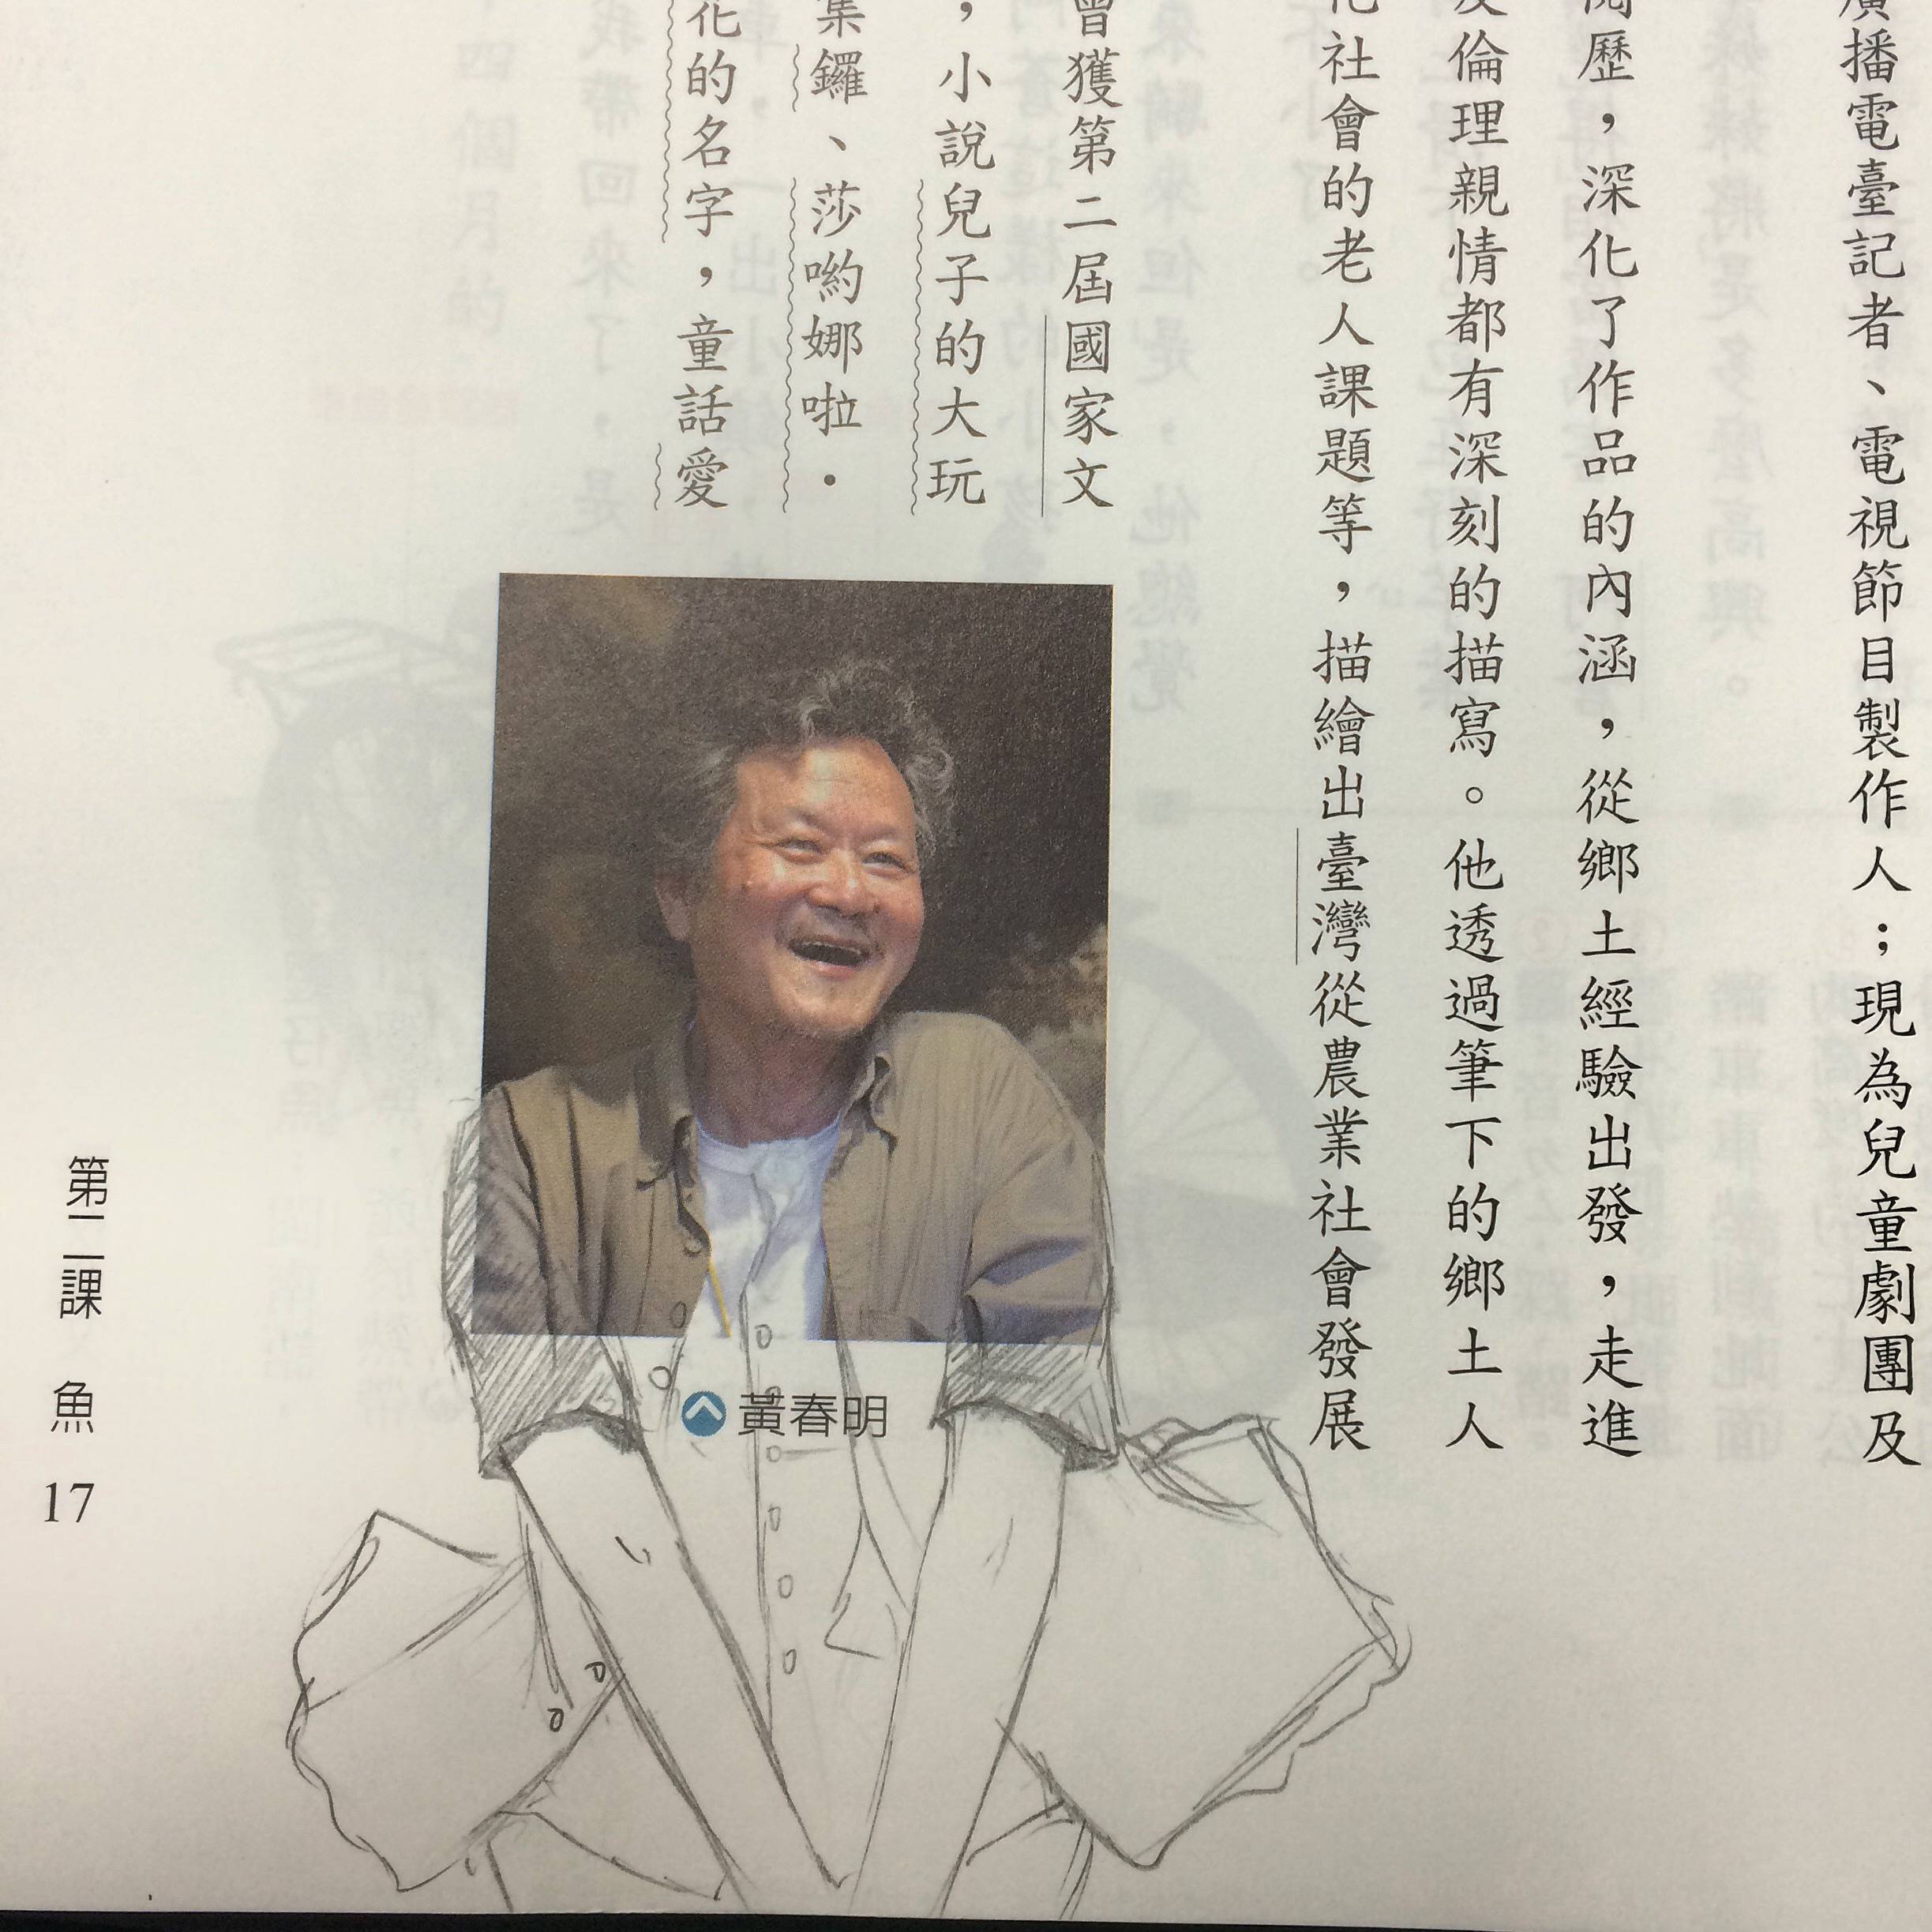 廣播電臺記者、電視節目製作人；現為兒童劇團及
閱歷，深化了作品的內涵，從鄉土經驗出發，走進
及倫理親情都有深刻的描寫。他透過筆下的鄉土人
化社會的老人課題等，描繪出臺灣從農業社會發展
曾獲第二屆國家文
，小說兒子的大玩
集鑼、莎喲娜啦．
花的名字，童話愛
黃春明
第二課 魚 17